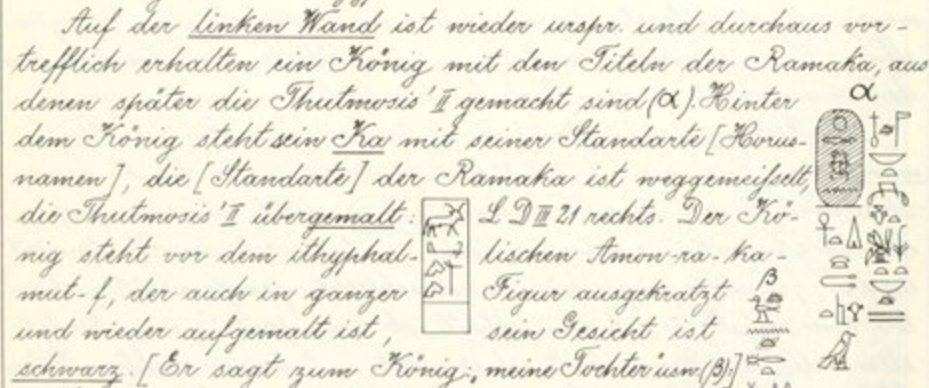 Auf der linken Wand ist wieder urspr. und durchaus vor-
trefflich erhalten ein König mit den Titeln der Ramaka, aus
denen später die Thutmosis' II gemacht sind (α). Hinter
dem König steht sein Ka mit seiner Standarte [Horus-
namen], die [Standarte] der Ramaka ist weggemeißelt,
die Thutmosis' II übergemalt: L D III 21 rechts. Der Kö-
nig steht vor dem ithyphal- lischen Amon-ra-ka-
mut-f, der auch in ganzer Figur ausgekratzt
und wieder aufgemalt ist, sein Gesicht ist
schwarz. [Er sagt zum König: „meine Tochter usw. (β).]
α
β